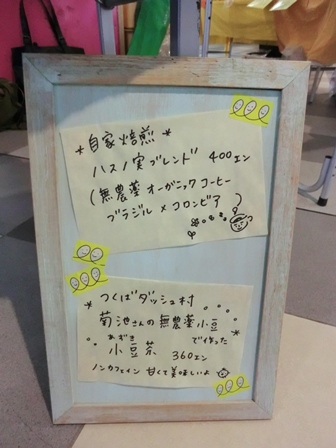 *自家焙煎*
ハスノ実ブレンド 400エン
(無農薬 オーガニックコーヒー
ブラジル×コロンビア
* つくばダッシュ村
菊池さんの無農薬小豆
で作った
あずき
小豆茶 360エン
ノンカフェイン 甘くて美味しいよ